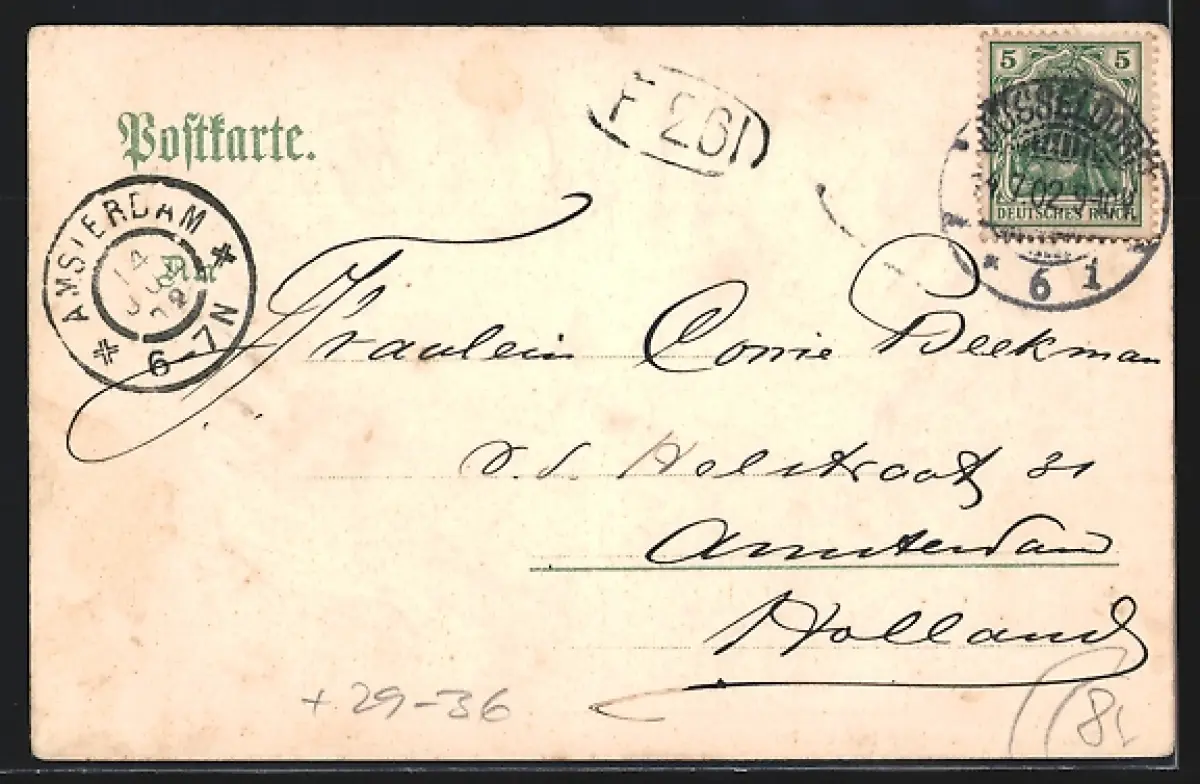 Postkarte.
261
5 5
DÜSSELDORF
7.02
DEUTSCHES REICH
6 1
AMSTERDAM
14
6-7N
An
Fräulein Corrie Beekman
v. d. Helstraat 31
Amsterdam
Holland
+ 29-36